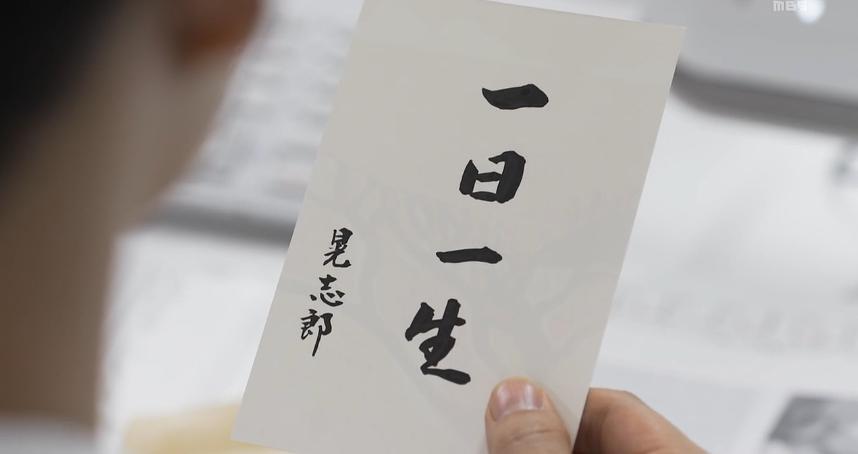 一日一生
晃志郎
MBS